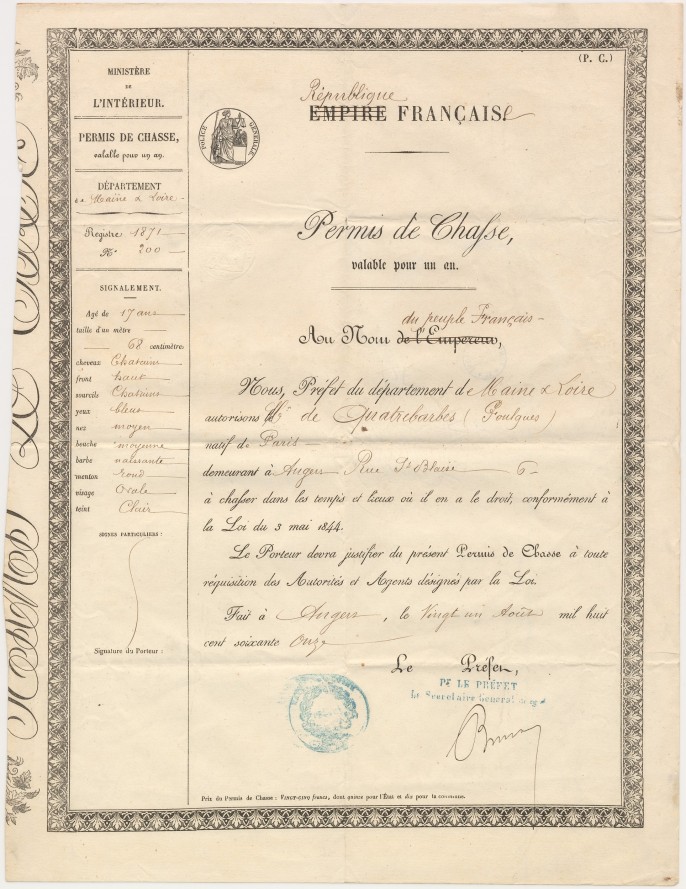 (P. C.)
MINISTÈRE
DE
L'INTÉRIEUR.
PERMIS DE CHASSE,
valable pour un an.
DÉPARTEMENT
de Maine & Loire
Registre 1871
N° 200
SIGNALEMENT.
Agé de 17 ans
taille d'un mètre
68 centimètres
cheveux Chatains
front haut
sourcils Chatains
yeux bleus
nez moyen
bouche moyenne
barbe naissante
menton rond
visage Ovale
teint Clair
SIGNES PARTICULIERS :
Signature du Porteur :
POLICE GÉNÉRALE
République
EMPIRE FRANÇAISE
Permis de Chasse,
valable pour un an.
du peuple Français
Au Nom de l'Empereur,
Nous, Préfet du département de Maine & Loire
autorisons Mr de Quatrebarbes (Foulques)
natif de Paris
demeurant à Angers Rue St Blaise 6
à chasser dans les temps et lieux où il en a le droit, conformément à
la Loi du 3 mai 1844.
Le Porteur devra justifier du présent Permis de Chasse à toute
réquisition des Autorités et Agents désignés par la Loi.
Fait à Angers, le Vingt un Août mil huit
cent soixante Onze
Le Préfet,
Pr LE PRÉFET
Le Secrétaire Général
Prix du Permis de Chasse : VINGT-CINQ francs, dont quinze pour l'État et dix pour la commune.